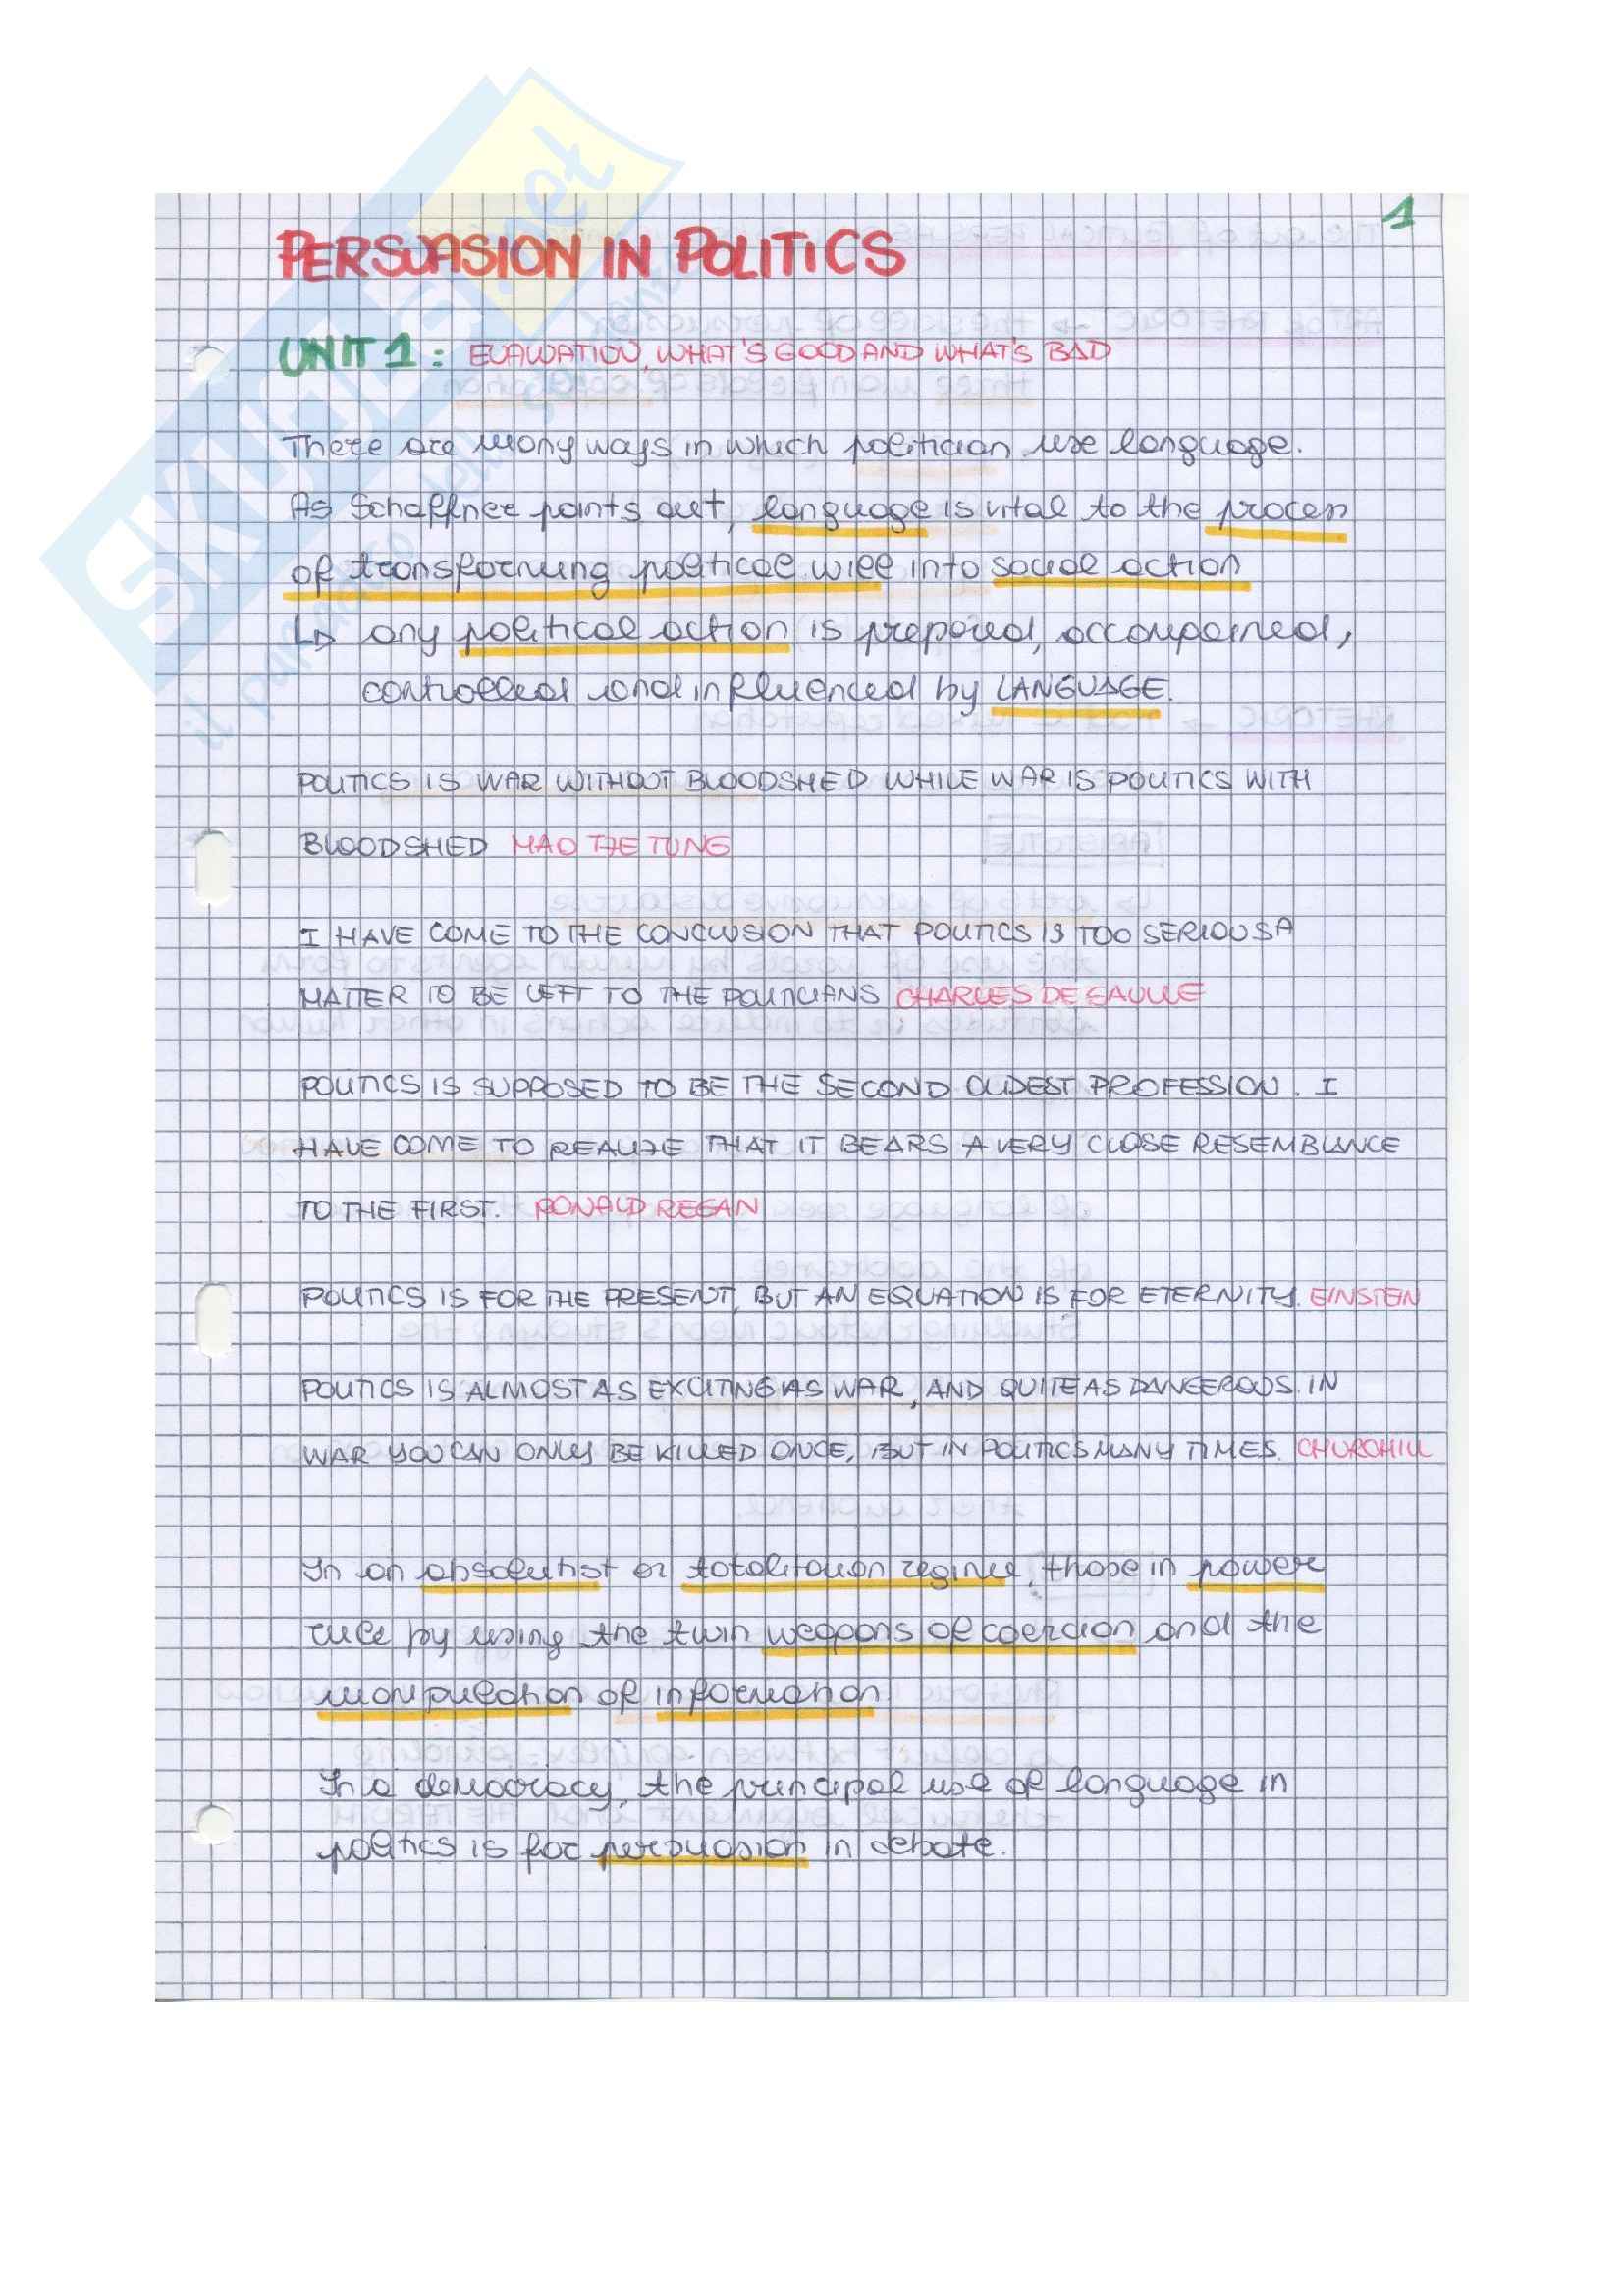 1
PERSUASION IN POLITICS
UNIT 1: EVALUATION, WHAT'S GOOD AND WHAT'S BAD
There are many ways in which politician use language.
As Schaffner points out, language is vital to the process
of transforming political will into social action
↳ any political action is prepared, accompained,
controlled and influenced by LANGUAGE.
POLITICS IS WAR WITHOUT BLOODSHED WHILE WAR IS POLITICS WITH
BLOODSHED MAO ZE TUNG
I HAVE COME TO THE CONCLUSION THAT POLITICS IS TOO SERIOUS A
MATTER TO BE LEFT TO THE POLITICIANS CHARLES DE GAULLE
POLITICS IS SUPPOSED TO BE THE SECOND OLDEST PROFESSION. I
HAVE COME TO REALIZE THAT IT BEARS A VERY CLOSE RESEMBLANCE
TO THE FIRST. RONALD REGAN
POLITICS IS FOR THE PRESENT, BUT AN EQUATION IS FOR ETERNITY. EINSTEIN
POLITICS IS ALMOST AS EXCITING AS WAR, AND QUITE AS DANGEROUS. IN
WAR YOU CAN ONLY BE KILLED ONCE, BUT IN POLITICS MANY TIMES. CHURCHILL
In an absolutist or totalitarian regime, those in power
rule by using the twin weapons of coercion and the
manipulation of information
In a democracy, the principal use of language in
politics is for persuasion in debate.
SKUOLA.net